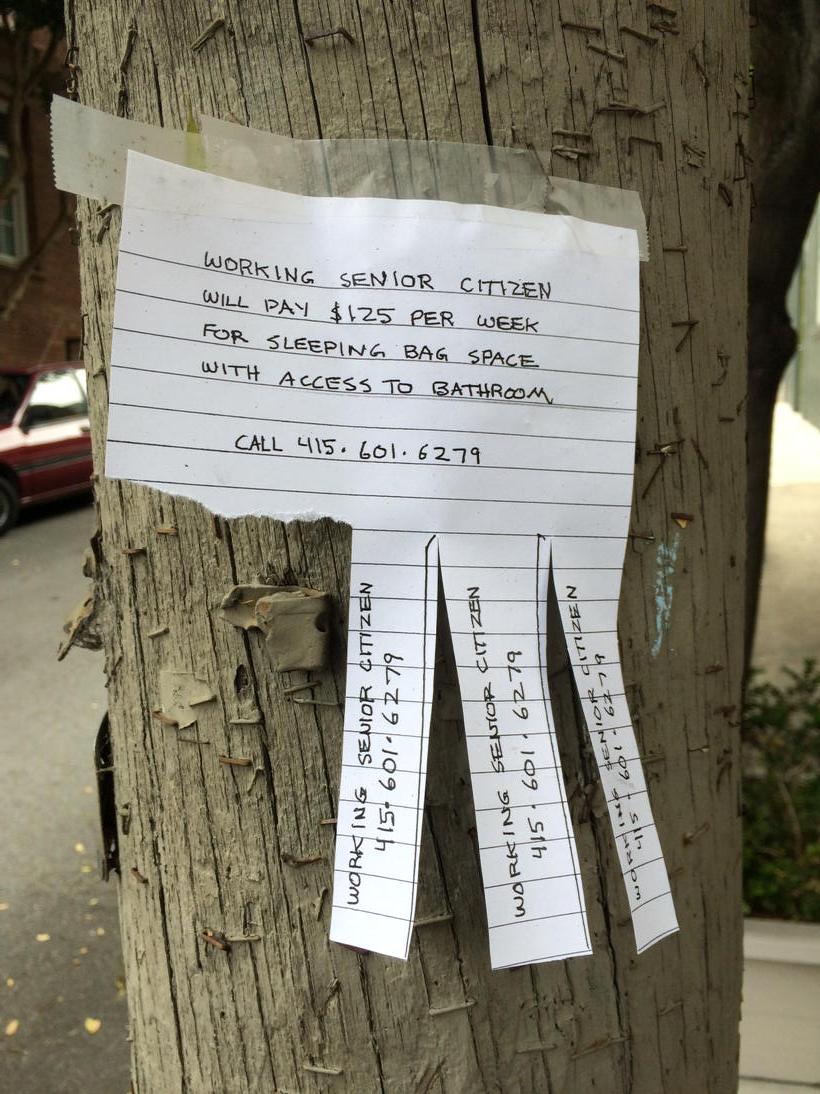 WORKING SENIOR CITIZEN
WILL PAY $125 PER WEEK
FOR SLEEPING BAG SPACE
WITH ACCESS TO BATHROOM
CALL 415.601.6279
WORKING SENIOR CITIZEN
415.601.6279
WORKING SENIOR CITIZEN
415.601.6279
WORKING SENIOR CITIZEN
415.601.6279